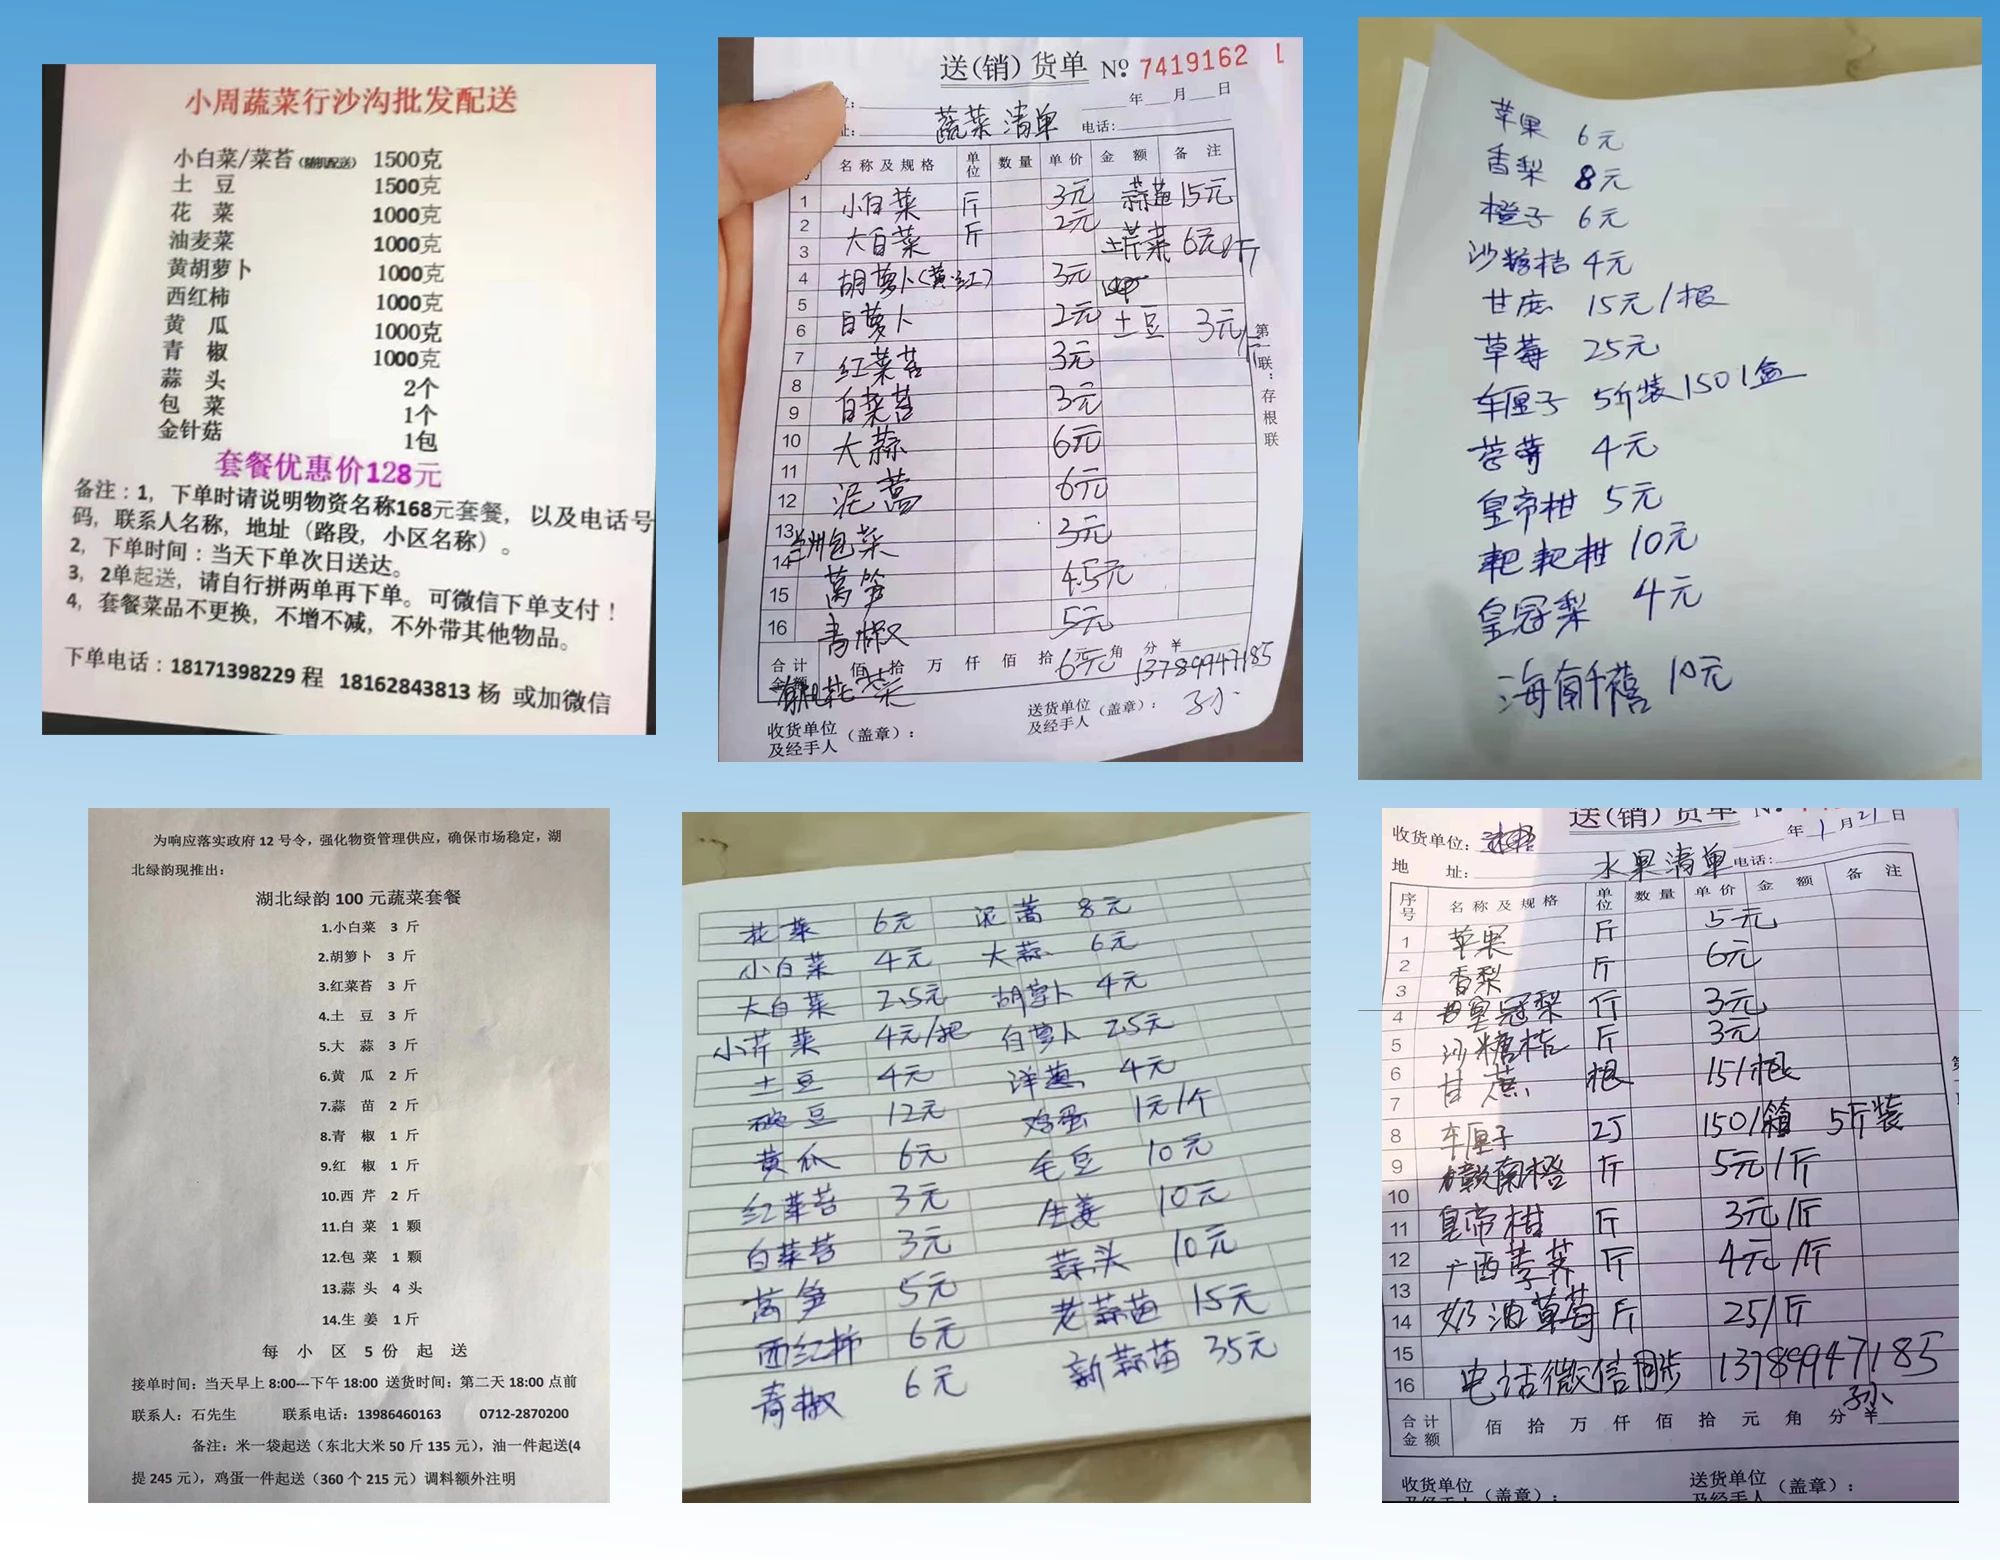 小周蔬菜行沙沟批发配送
小白菜/菜苔(随机配送) 1500克
土 豆 1500克
花 菜 1000克
油麦菜 1000克
黄胡萝卜 1000克
西红柿 1000克
黄 瓜 1000克
青 椒 1000克
蒜 头 2个
包 菜 1个
金针菇 1包
套餐优惠价128元
备注：1，下单时请说明物资名称168元套餐，以及电话号
码，联系人名称，地址（路段，小区名称）。
2，下单时间：当天下单次日送达。
3，2单起送，请自行拼两单再下单。可微信下单支付！
4，套餐菜品不更换，不增不减，不外带其他物品。
下单电话：18171398229 程 18162843813 杨 或加微信
送(销)货单 Nº 7419162
年 月 日
址： 蔬菜清单 电话：
名称及规格 单位 数量 单价 金额 备注
1 小白菜 斤 3元 蒜苗 15元
2 大白菜 斤 2元
3 土芹菜 6元/斤
4 胡萝卜(黄.红) 3元
5
6 白萝卜 2元 土豆 3元/斤
7 红菜苔 3元
8
9 白菜苔 3元
10 大蒜 6元
11
12 泥蒿 6元
13 兰州包菜 3元
14
15 莴笋 4.5元
16 青椒 5元
合计金额 佰 拾 万 仟 佰 拾 元 角 分 ¥
有机花菜 6元 13789947185
孙
收货单位及经手人（盖章）： 送货单位及经手人（盖章）：
第一联：存根联
苹果 6元
香梨 8元
橙子 6元
沙糖桔 4元
甘蔗 15元/根
草莓 25元
车厘子 5斤装1501盒
4元
皇帝柑 5元
耙耙柑 10元
皇冠梨 4元
海南千禧 10元
为响应落实政府 12 号令，强化物资管理供应，确保市场稳定，湖
北绿韵现推出：
湖北绿韵 100 元蔬菜套餐
1.小白菜 3 斤
2.胡萝卜 3 斤
3.红菜苔 3 斤
4.土 豆 3 斤
5.大 蒜 3 斤
6.黄 瓜 2 斤
7.蒜 苗 2 斤
8.青 椒 1 斤
9.红 椒 1 斤
10.西 芹 2 斤
11.白 菜 1 颗
12.包 菜 1 颗
13.蒜 头 4 头
14.生 姜 1斤
每 小 区 5 份 起 送
接单时间：当天早上 8:00---下午 18:00 送货时间：第二天 18:00 点前
联系人：石先生 联系电话：13986460163 0712-2870200
备注：米一袋起送（东北大米 50 斤 135 元），油一件起送(4
提 245 元)，鸡蛋一件起送（360 个 215 元）调料额外注明
花菜 6元 泥蒿 8元
小白菜 4元 大蒜 6元
大白菜 2.5元 胡萝卜 4元
小芹菜 4元/把 白萝卜 2.5元
土豆 4元 洋葱 4元
碗豆 12元 鸡蛋 1元/个
黄瓜 6元 毛豆 10元
红菜苔 3元 生姜 10元
白菜苔 3元 蒜头 10元
莴笋 5元 老蒜苗 15元
西红柿 6元 新蒜苗 35元
青椒 6元
送(销)货单 Nº
收货单位： 年 1 月 21 日
地 址： 水果清单 电话：
序号 名称及规格 单位 数量 单价 金额 备注
1 苹果 斤 5元
2 香梨 斤 6元
3
4 皇冠梨 斤 3元
5 沙糖桔 斤 3元
6 甘蔗 根 15/根
7
8 车厘子 2J 150/箱 5斤装
9 赣南橙 斤 5元/斤
10
11 皇帝柑 斤 3元/斤
12 广西荸荠 斤 4元/斤
13
14 奶油草莓 斤 25/斤
15
16 电话微信同步 13789947185
孙
合计金额 佰 拾 万 仟 佰 拾 元 角 分 ¥
收货单位及经手人（盖章）： 送货单位及经手人（盖章）：